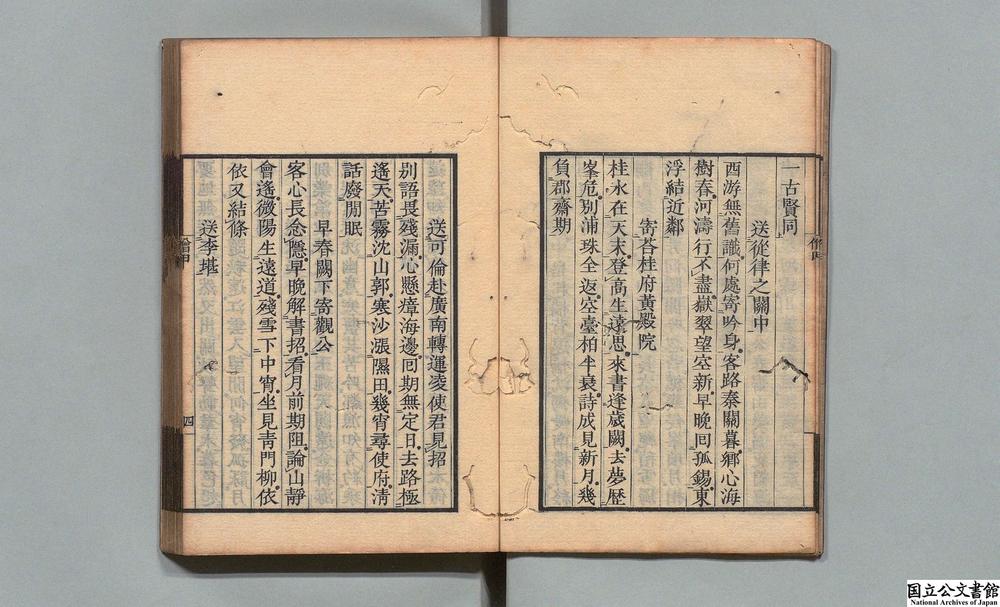 一古賢同
送從律之關中
西游無舊識何處寄吟身客路秦關暮鄉心海
樹春河濤行不盡嶽翠望空新早晚囘孤錫東
浮結近鄰
寄荅桂府黃殿院
桂水在天末登高生遠思來書逢歲闕去夢歷
峯危別浦珠全返空臺柏半衰詩成見新月幾
負郡齋期
送可倫赴廣南轉運凌使君見招
別語畏殘漏心懸瘴海邊囘期無定日去路極
遙天苦霧沈山郭寒沙漲隰田幾宵尋使府清
話廢閒眠
早春闕下寄觀公
客心長念隱早晚解書招看月前期阻論山靜
會遙微陽生遠道殘雪下中宵坐見青門柳依
依又結條
送李堪
四
国立公文書館
National Archives of Japan